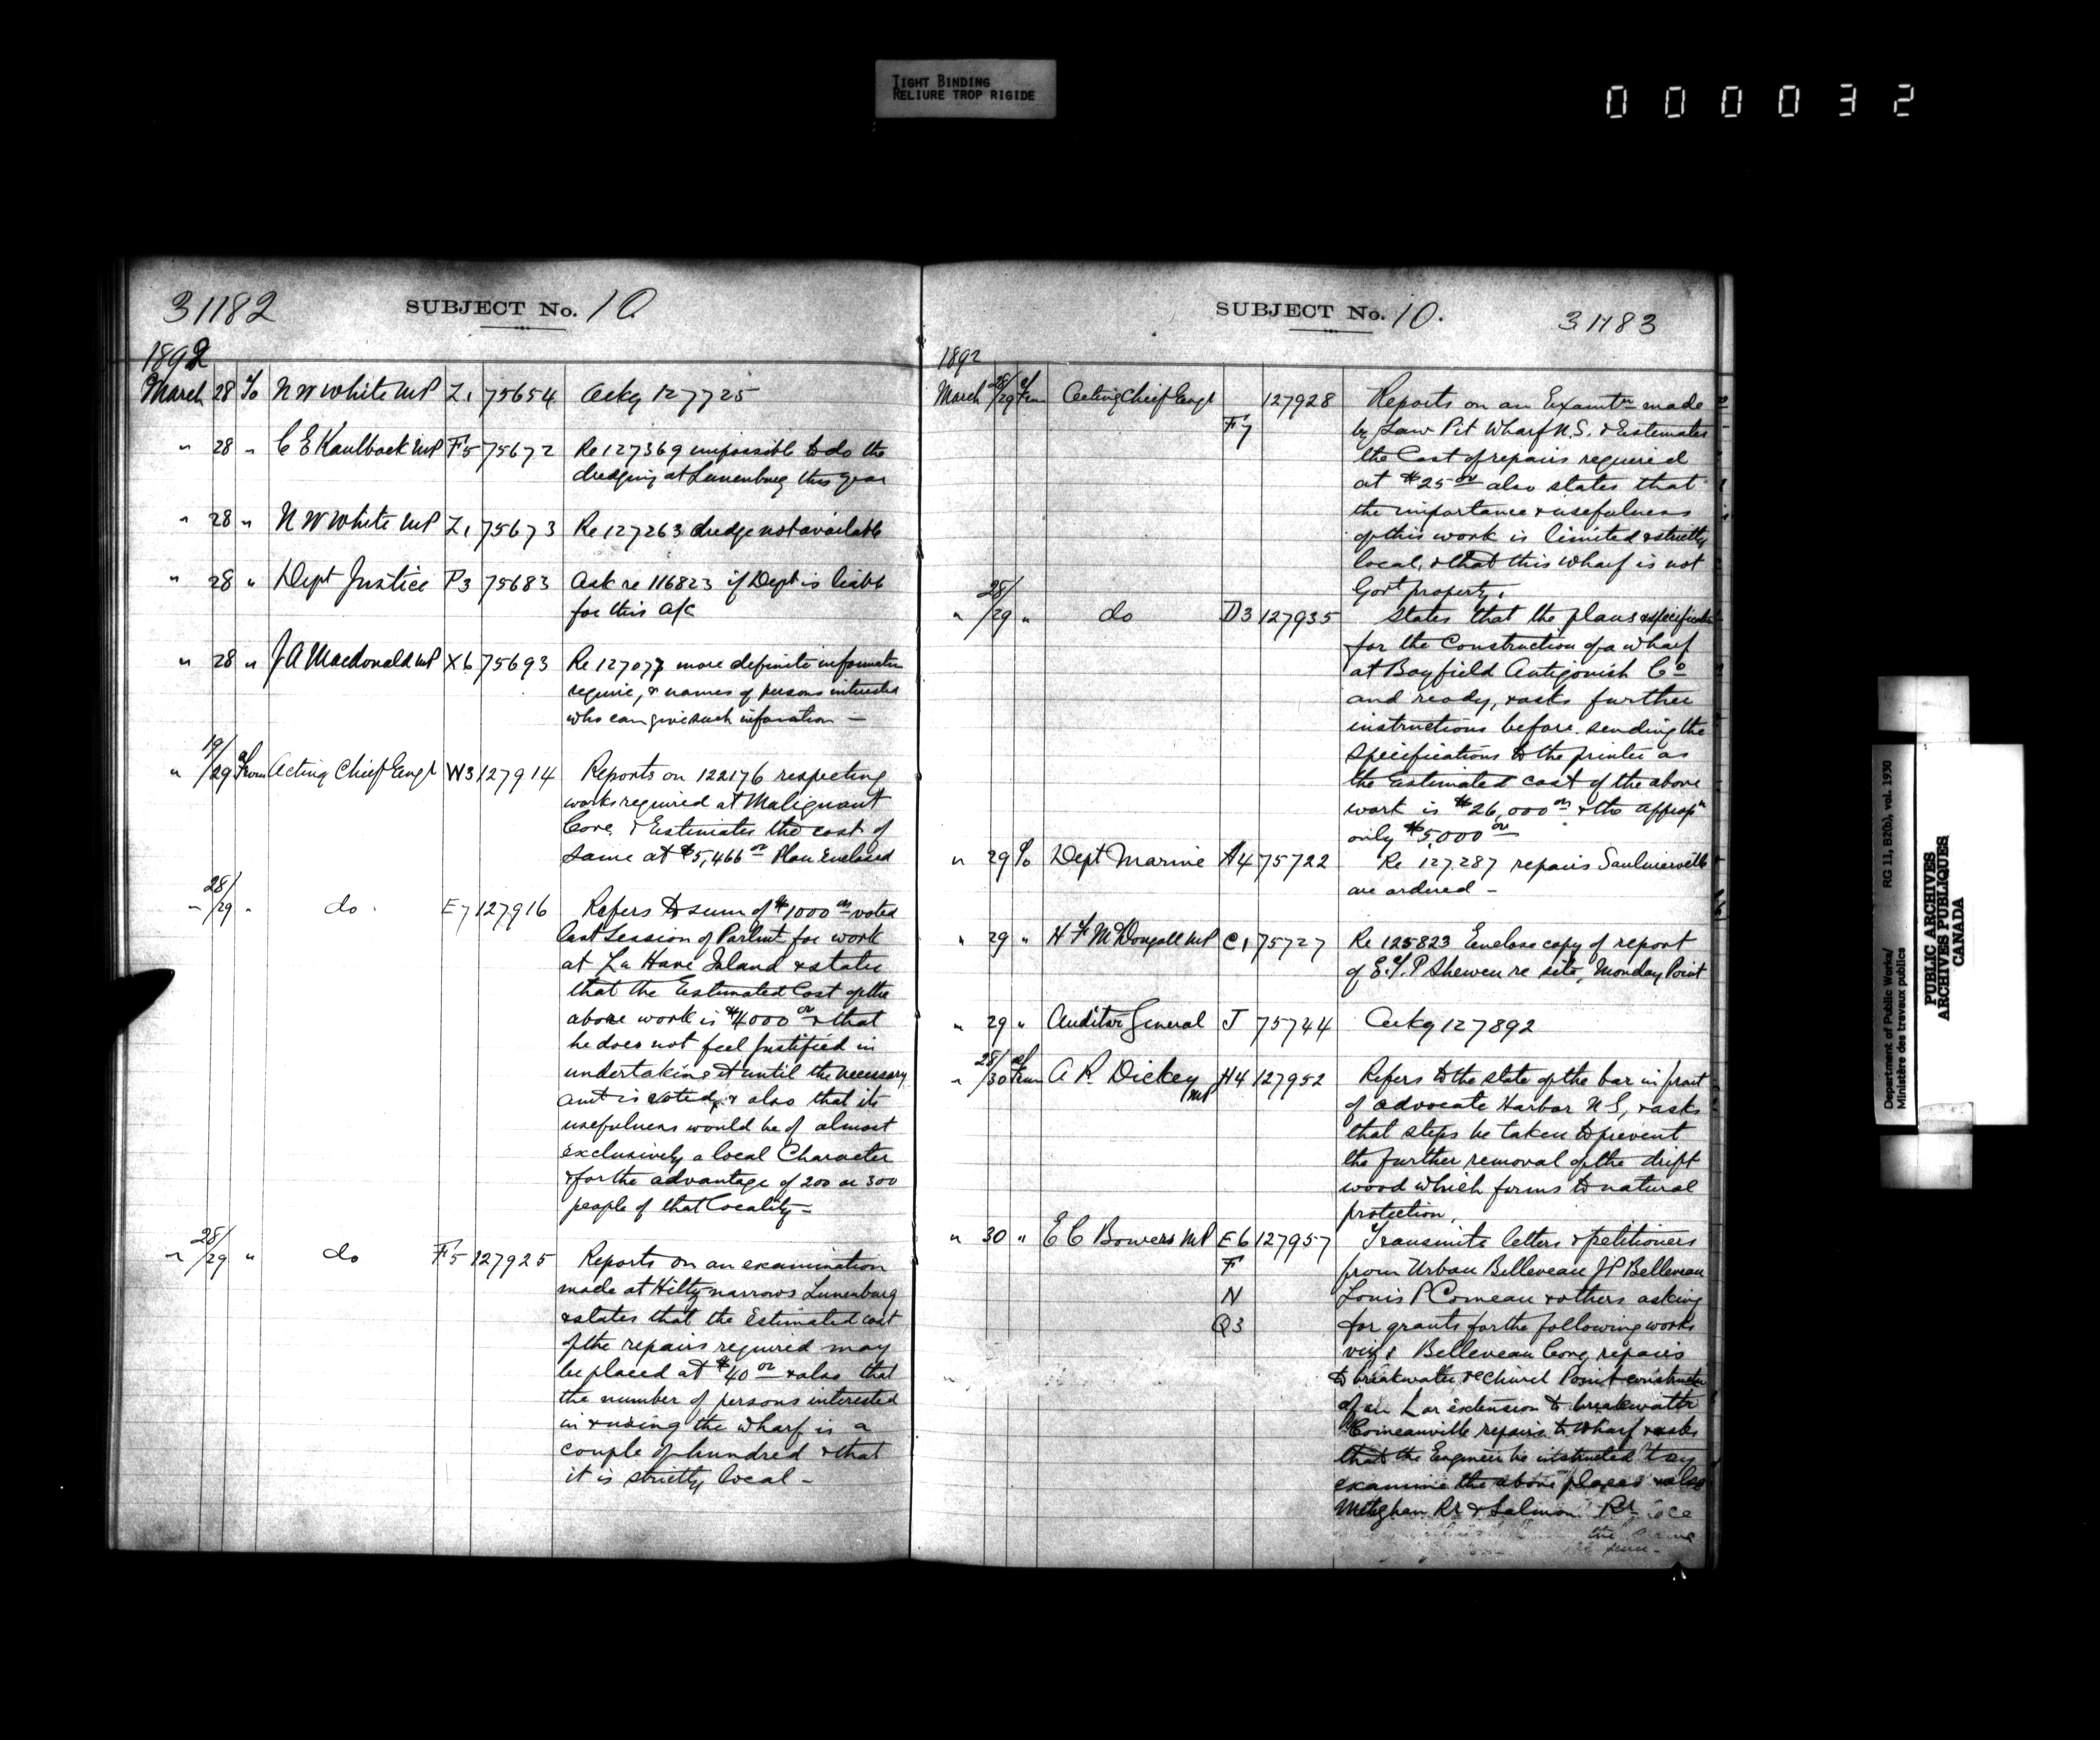 TIGHT BINDING
RELIURE TROP RIGIDE
000032
31182
SUBJECT No. 10
1892
March 28 To N W White MP Z1 75654 Ackg 127725
" 28 " C E Kaulback MP F5 75672 Re 127369 impossible to do the
dredging at Lunenburg this year
" 28 " N W White MP Z1 75673 Re 127263 dredge not available
" 28 " Dept Justice P3 75683 Ask re 116823 if Dept is liable
for this a/c
" 28 " J A Macdonald MP X6 75693 Re 127077 more definite information
require, & names of persons interested
who can give such information —
" 19/29 of From Acting Chief Engr W3 127914 Reports on 122176 respecting
works required at Malignant
Cove & Estimates the cost of
same at $5,466 00 Plan Enclosed
" 28/29 " do E7 127916 Refers to sum of $1000 00 voted
last Session of Parlmt for work
at La Have Island & states
that the Estimated Cost of the
above work is $4000 00 & that
he does not feel justified in
undertaking it until the necessary
amt is voted, & also that its
usefulness would be of almost
exclusively a local Character
& for the advantage of 200 or 300
people of that locality —
" 28/29 " do F5 127925 Reports on an examination
made at Hiltz narrows Lunenburg
& states that the Estimated cost
of the repairs required may
be placed at $40 00 & also that
the number of persons interested
in & using the wharf is a
couple of hundred & that
it is strictly local —
SUBJECT No. 10.
31183
1892
March 28/29 of From Acting Chief Engr 127928 Reports on an Examtn made
F7 by Law Pit Wharf N.S. & Estimates
the Cost of repairs required
at $25 00 also states that
the importance & usefulness
of this work is limited & strictly
local, & that this wharf is not
Govt property.
" 28/29 " do D3 127935 States that the plans & specifications
for the Construction of a wharf
at Bayfield Antigonish Co
and ready, & asks further
instructions before sending the
specifications to the printer as
the estimated cost of the above
work is $26,000 00 & the appropn
only $5,000 00
" 29 To Dept Marine A4 75722 Re 127.287 repairs Saulnierville
are ordered —
" 29 " H F McDougall MP C1 75727 Re 125823 Enclose copy of report
of E.T.P Shewen re site, Monday Point
" 29 " Auditor General J 75744 Ackg 127892
" 28/30 of From A R. Dickey MP H4 127952 Refers to the state of the bar in front
of advocate Harbor N S, & asks
that steps be taken to prevent
the further removal of the drift
wood which forms to natural
protection,
" 30 " E C Bowers MP E6 127957 Transmits letters & petitioners
F from Urban Belleveau J P Belleveau
N Louis P Comeau & others asking
Q3 for grants for the following works
viz: Belleveau Cove, repairs
to breakwater & Church Point construction
of an L or extension to breakwater
Comeauville repairs to Wharf & asks
that the Engineer be instructed to
examine the above places & also
Meteghan Rr & Salmon Rr
the same
Department of Public Works/
Ministère des travaux publics
RG 11, B2(b), vol. 1930
PUBLIC ARCHIVES
ARCHIVES PUBLIQUES
CANADA